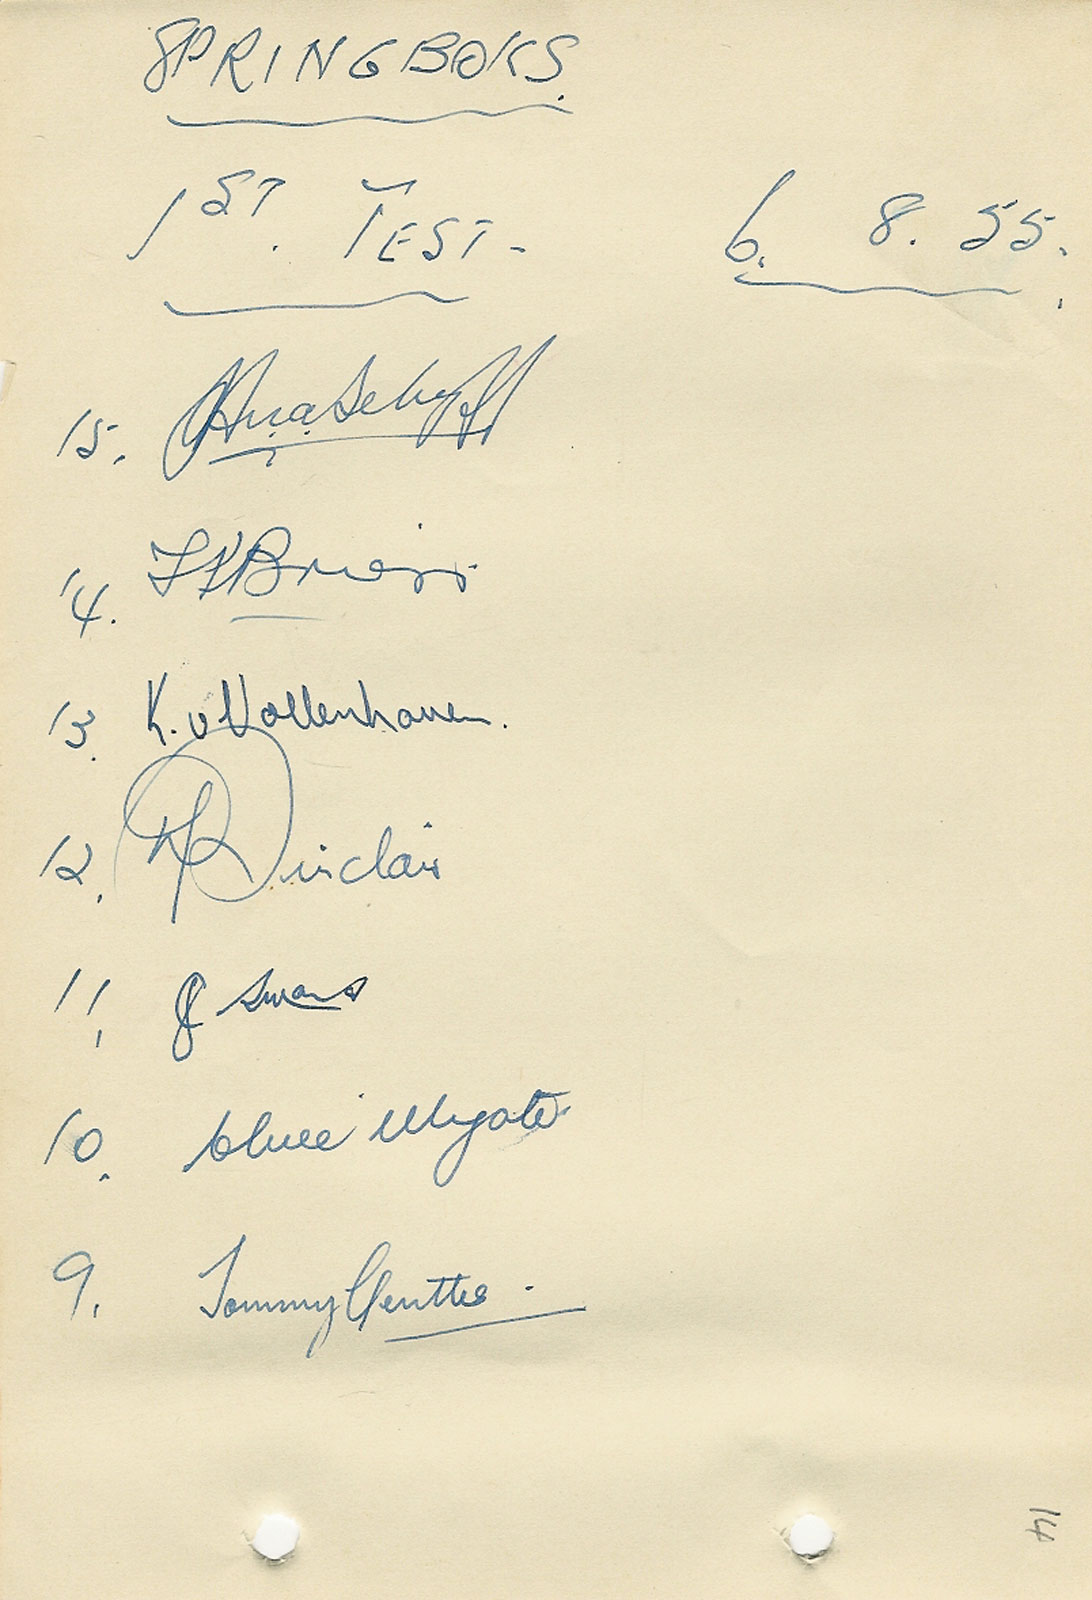 SPRINGBOKS.
1ST. TEST. 6. 8. 55.
15. v.d. Schyff
14. T P Briers
13. K. v Vollenhoven.
12. D Sinclair
11. J Swart
10. Clive Ulyate
9. Tommy Gentles.
14